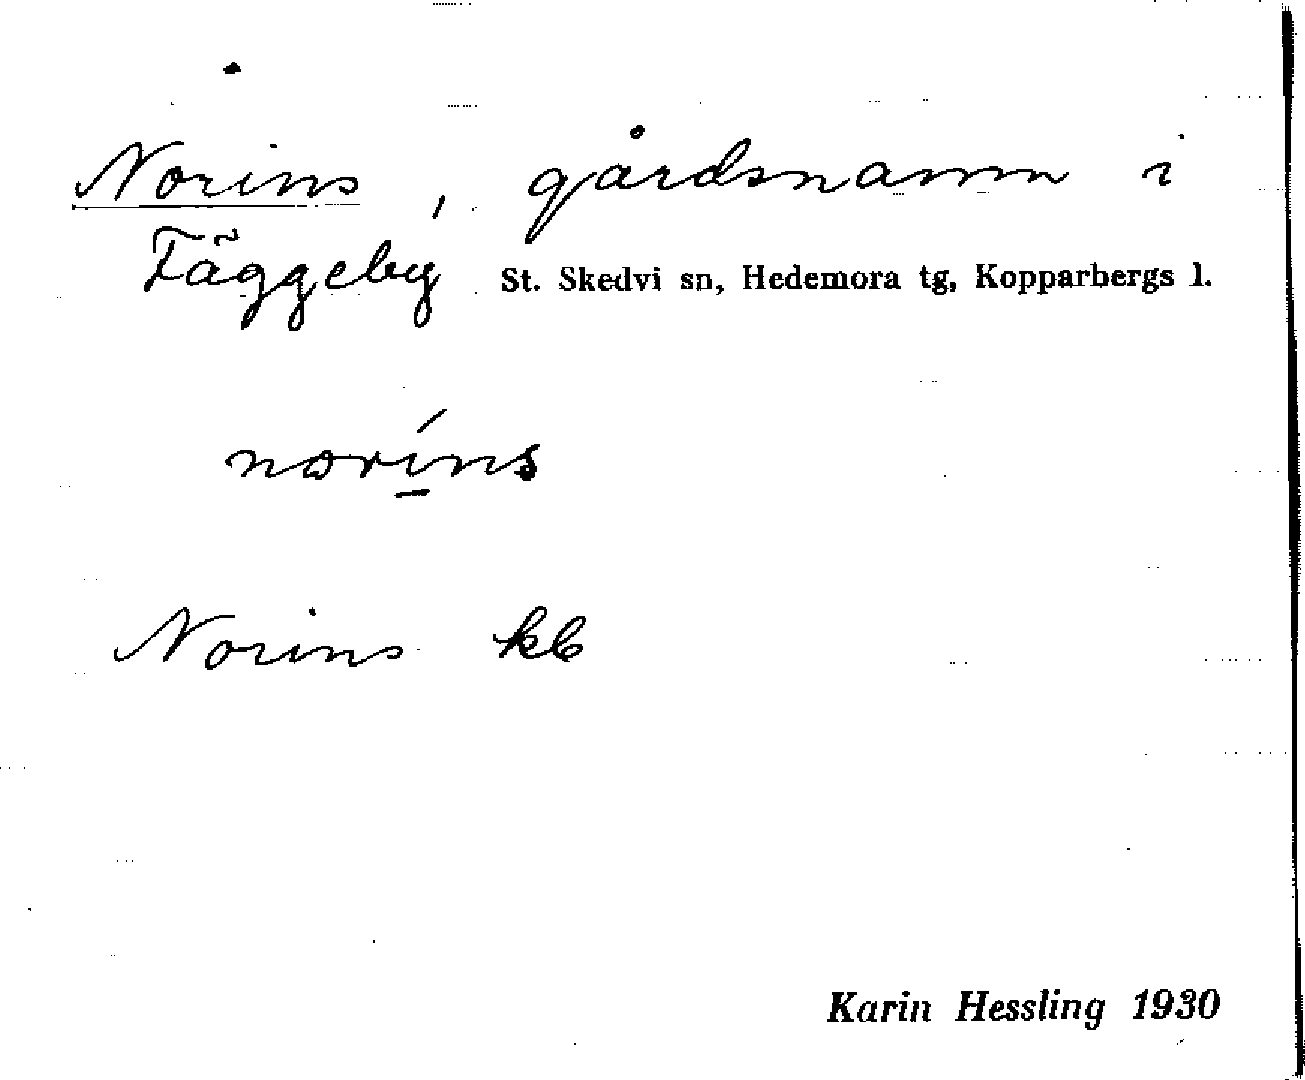 Norins, gårdsnamn i
Fäggeby St. Skedvi sn, Hedemora tg, Kopparbergs l.
noríns
Norins kb
Karin Hessling 1930